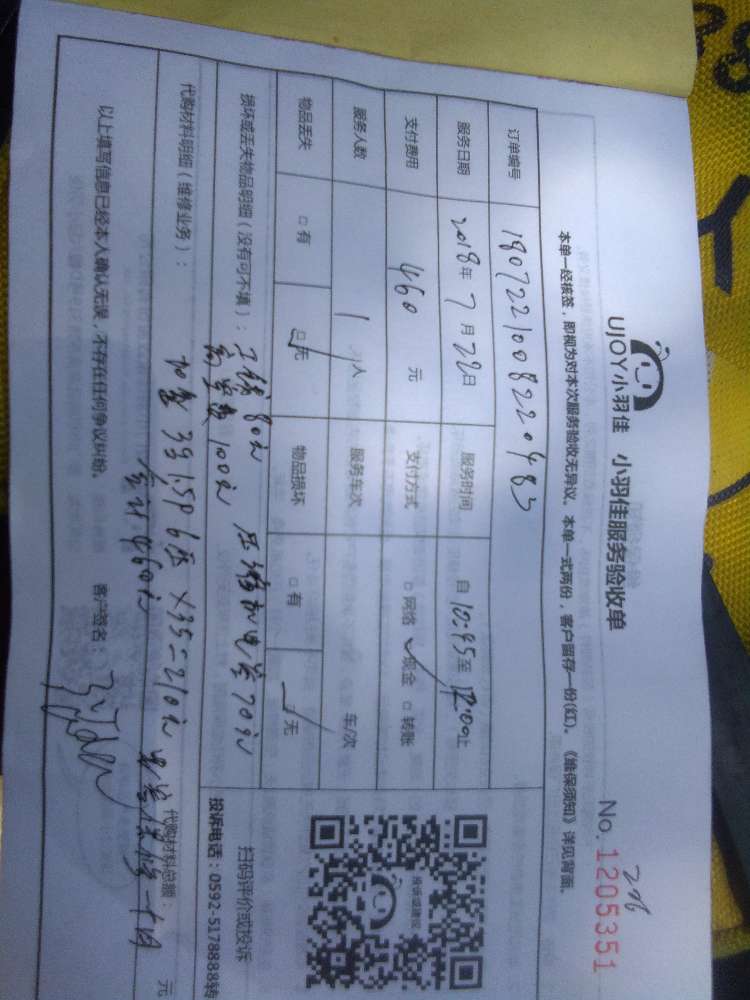 UJOY小羽佳 小羽佳服务验收单
No. 1205351
本单一经核签，即视为对本次服务验收无异议。本单一式两份，客户留存一份(红)。《维保须知》详见背面。
订单编号 1807221008220483
服务日期 2018年7月22日 服务时间 自10:45至12:00止
支付费用 460 元 支付方式 □网络 ✓现金 □转账
服务人数 1 人 服务车次 车/次
物品丢失 □有 □无 物品损坏 □有 无
损坏或丢失物品明细（没有可不填）： 工钱80元 压缩机电容70元
高空费100元
代购材料明细（维修业务）： 加氟 3匹 1.5P 6压 X35=210元 电容保修一个月
代购材料总额： 元
合计460元
以上填写信息已经本人确认无误，不存在任何争议纠纷。 客户签名：
投诉或建议
扫码评价或投诉
投诉电话：0592-5178888转